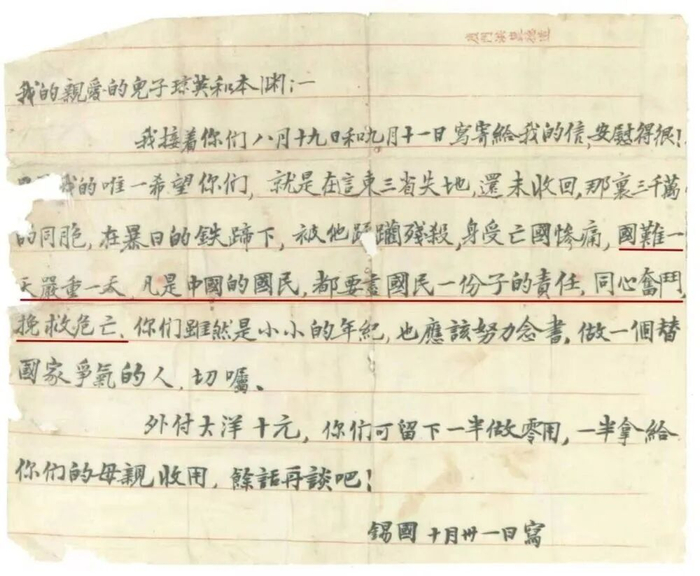 我的親愛的兒子琼英和本渊:—
我接着你们八月十九日和九月十一日寫寄給我的信,安慰得很!
我的唯一希望你们,就是在言東三省失地,還未收回,那裏三千萬
的同胞,在暴日的鉄蹄下,被他蹂躪殘殺,身受亡國慘痛,國難一
天嚴重一天,凡是中國的國民,都要盡國民一份子的責任,同心奮鬥,
挽救危亡、你们雖然是小小的年紀,也應該努力念書、做一個替
國家爭氣的人,切囑、
外付大洋十元,你们可留下一半做零用,一半拿給
你们的母親收用,餘話再談吧!
錫國 十月卅一日寫